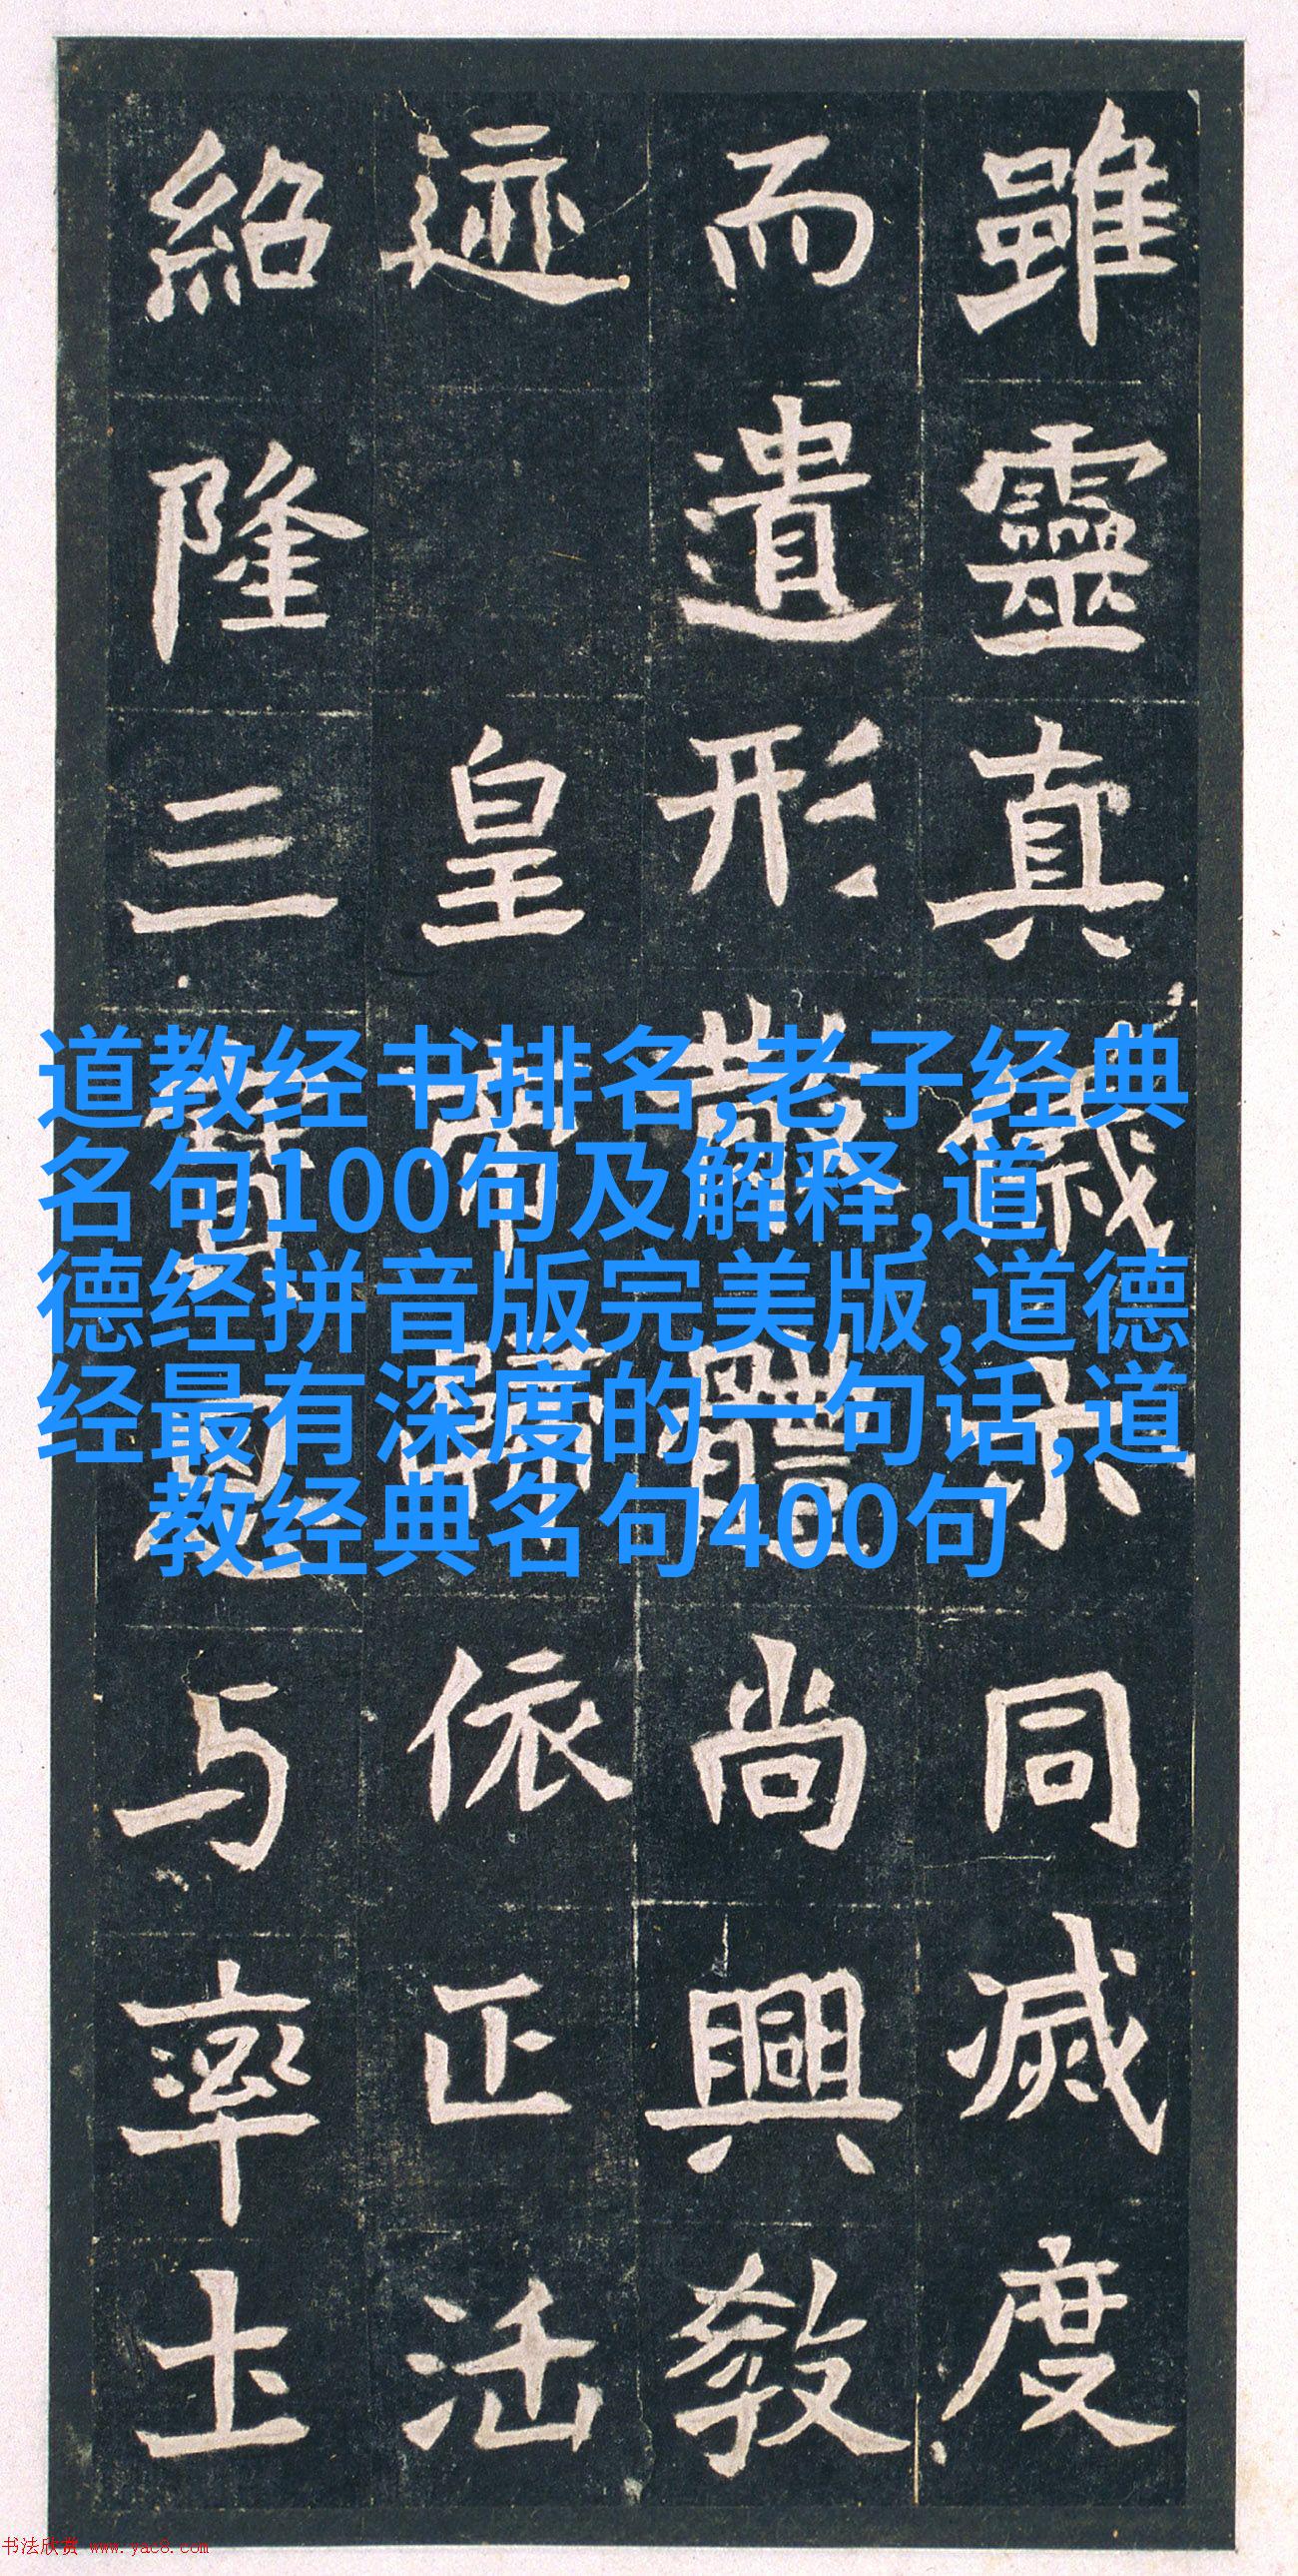 雖靈真儀示同滅度
而遺形散體尚興教
迹 皇帝歸依正法
紹隆三寶思与率土
道教经书排名,老子经典
名句100句及解释,道
德经拼音版完美版,道德
经最有深度的一句话,道
教经典名句400句
书法欣赏 www.yac8.com